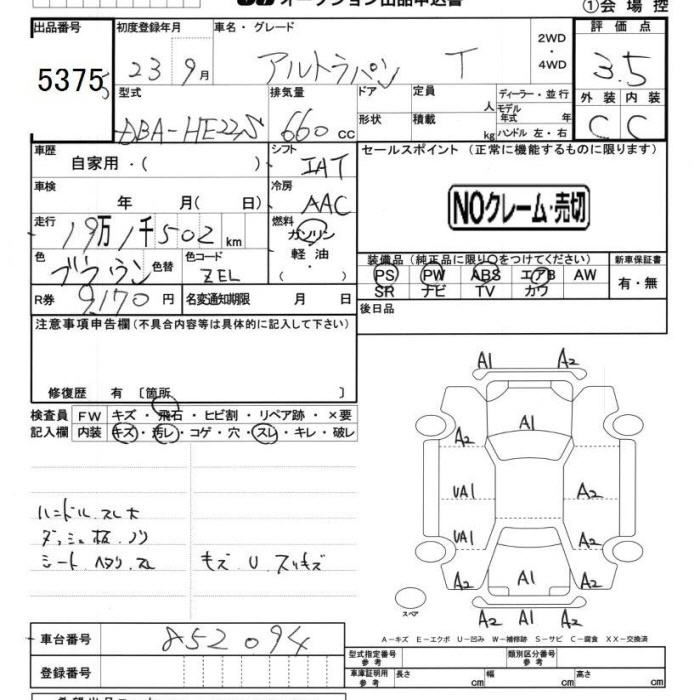 オークション出品申込書
①会場控
出品番号 初度登録年月 車名・グレード 2WD・4WD 評価点
5375 23 9月 アルトラパン T 3.5
型式 排気量 ドア 定員 人 ディーラー・並行 外装 内装
DBA-HE22S 660cc 形状 積載 kg モデル年式 年 ハンドル 左・右 C C
車歴 自家用・( ) シフト IAT セールスポイント (正常に機能するものに限ります)
車検 年 月( 日) 冷房 AAC NOクレーム・売切
走行 19万1千502km 燃料 ガソリン 軽油・( ・ )
装備品(純正品に限り○をつけてください) 新車保証書
色 ブラウン 色替 色コード ZEL PS PW ABS エアB AW 有・無
SR ナビ TV カワ
R券 9,170円 名変通知期限 月 日 後日品
注意事項申告欄(不具合内容等は具体的に記入して下さい)
修復歴 有〔箇所 〕
検査員 FW キズ・飛石・ヒビ割・リペア跡・×要
記入欄 内装 キズ・汚レ・コゲ・穴・スレ・キレ・破レ
A1 A2
A1
A2
UA1 A2 A2
UA1
A2 A1 A2
A2 A1 A2
スペア
ハンドル.スレ大
ダッシュ板.ノリ
シート.ヘタリ.スレ キズ U スリキズ
A-キズ E-エクボ U-凹み W-補修跡 S-サビ C-腐食 XX-交換済
車台番号 852094
登録番号
型式指定番号 参考 類別区分番号 参考
車庫証明用 参考 長さ cm 幅 cm 高さ cm